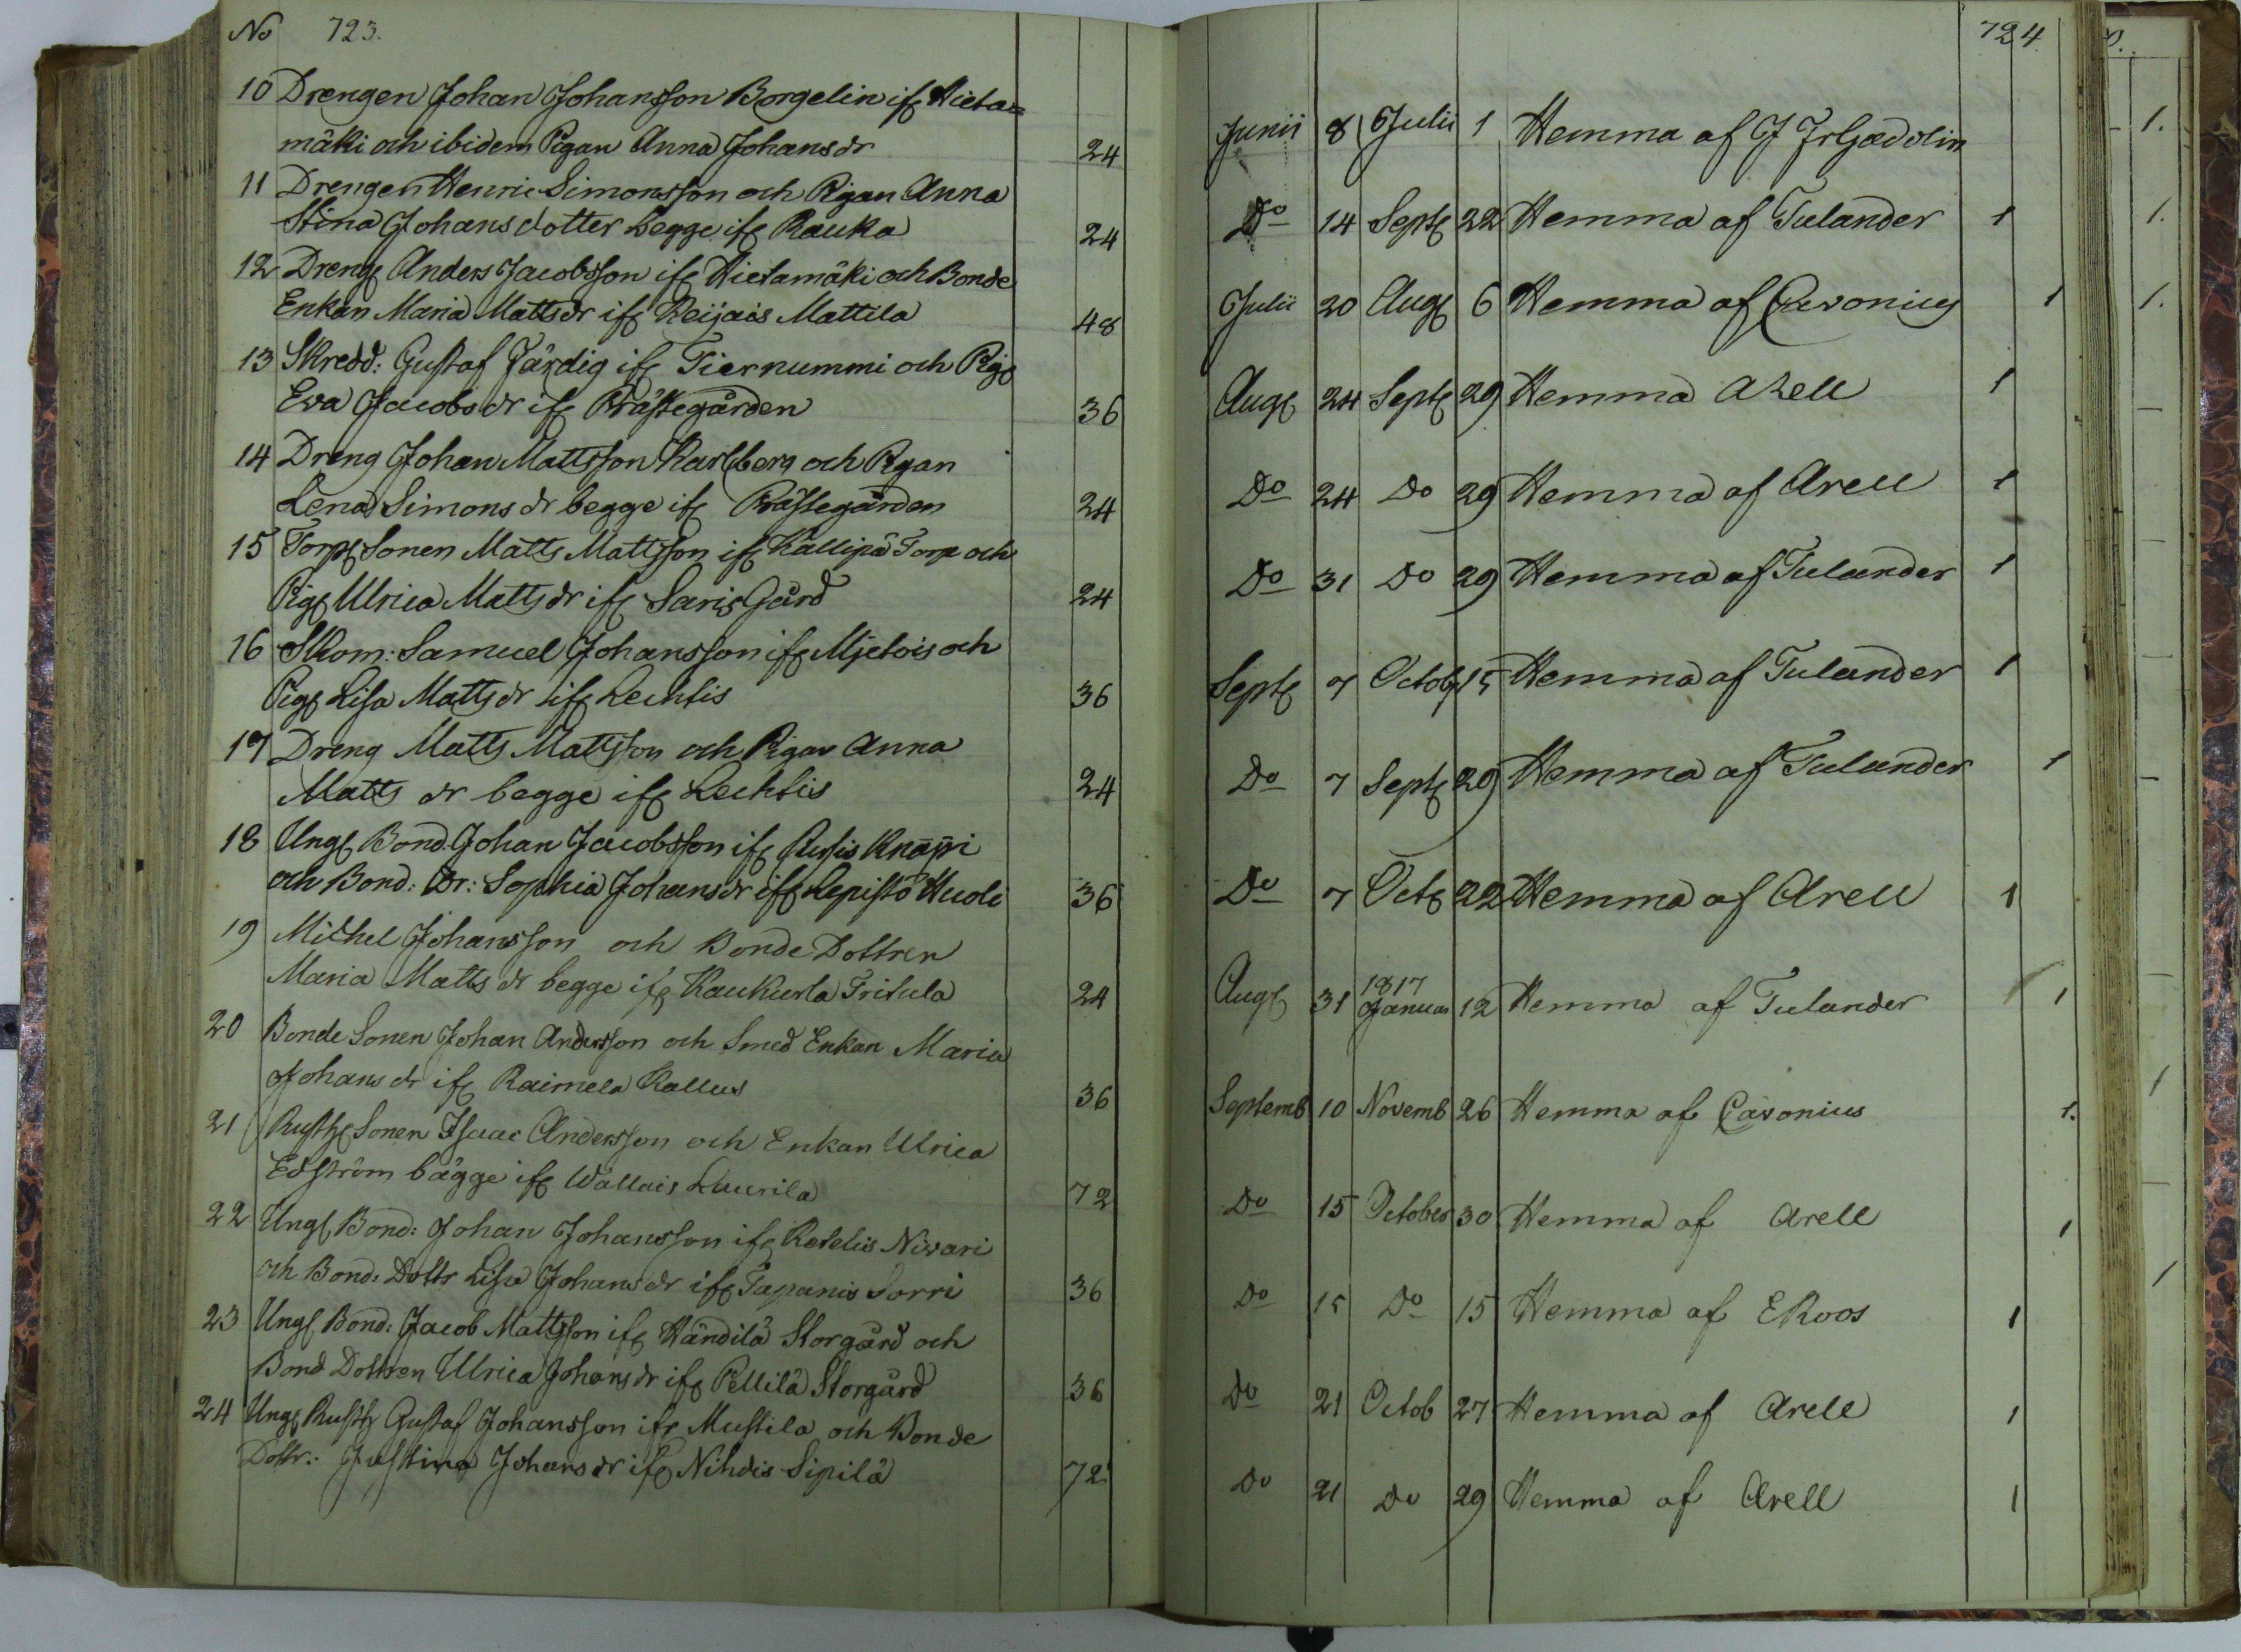 No 723.
10 Drengen Johan Johansson Borgelin ifr Hieta=
mäki och ibidem Pigan Anna Johansdr 24
11 Drengen Henric Simonsson och Pigan Anna
Stina Johansdotter begge ifr Rauka 24
12 Dreng Anders Jacobsson ifr Hietamäki och Bonde
Enkan Maria Mattsdr ifr Keijais Mattila 48
13 Skredd: Gustaf Färdig ifr Tiernummi och Pig
Eva Jacobsdr ifr Prästegården 36
14 Dreng Johan Mattsson Karlberg och Pigan
Lena Simonsdr begge ifr Prästegården 24
15 Torp Sonen Matts Mattsson ifr Källipä Torp och
Pig Ulrica Mattsdr ifr Saris Gård 24
16 Skom: Samuel Johansson ifr Mjetois och
Pig Lisa Mattsdr ifr Lechtis 36
17 Dreng Matts Mattsson och Pigan Anna
Matts dr begge ifr Lechtis 24
18 Ung Bond. Johan Jacobsson ifr Knäpi
och Bond: Dr: Sophia Johansdr ifr Lepistö Huoli 36
19 Michel Johansson och Bonde Dottren
Maria Matts dr begge ifr Kaukurla Tritula 24
20 Bonde Sonen Johan Andersson och Smed Enkan Maria
Johans dr ifr Raimela Kallus 36
21 Rusth Sonen Isaac Andersson och Enkan Ulrica
Edström bägge ifr Wallais Laurila 72
22 Ung Bond: Johan Johansson ifr Retelis Nivari
och Bond: Dottr Lisa Johansdr ifr Tapanis Sorri 36
23 Ung Bond: Jacob Mattsson ifr Händilä Storgård och
Bond Dottren Ulrica Johansdr ifr Pellilä Storgård 36
24 Ung Rusth Gustaf Johansson ifr Mustila och Bonde
Dottr: Justina Johansdr ifr Nihdis Sipilä 72
724
Junii 8 Julii 1 Hemma af J Gaddolin
Do 14 Sept 22 Hemma af Tulander 1
Julii 20 Aug 6 Hemma af Cavonius 1
Aug 24 Sept 29 Hemma Arell 1
Do 24 Do 29 Hemma af Arell 1
Do 31 Do 29 Hemma af Tulander 1
Sept 7 Octob 15 Hemma af Tulander 1
Do 7 Sept 29 Hemma af Tulander 1
Do 7 Oct 22 Hemma af Arell 1
1817
Aug 31 Januar 12 Hemma af Tulander 1
Septemb 10 Novemb 26 Hemma af Cavonius 1.
Do 15 October 30 Hemma af Arell 1
Do 15 Do 15 Hemma af E Roos 1
Do 21 Octob 27 Hemma af Arell 1
Do 21 Do 29 Hemma af Arell 1
1.
1.
1.
1
1